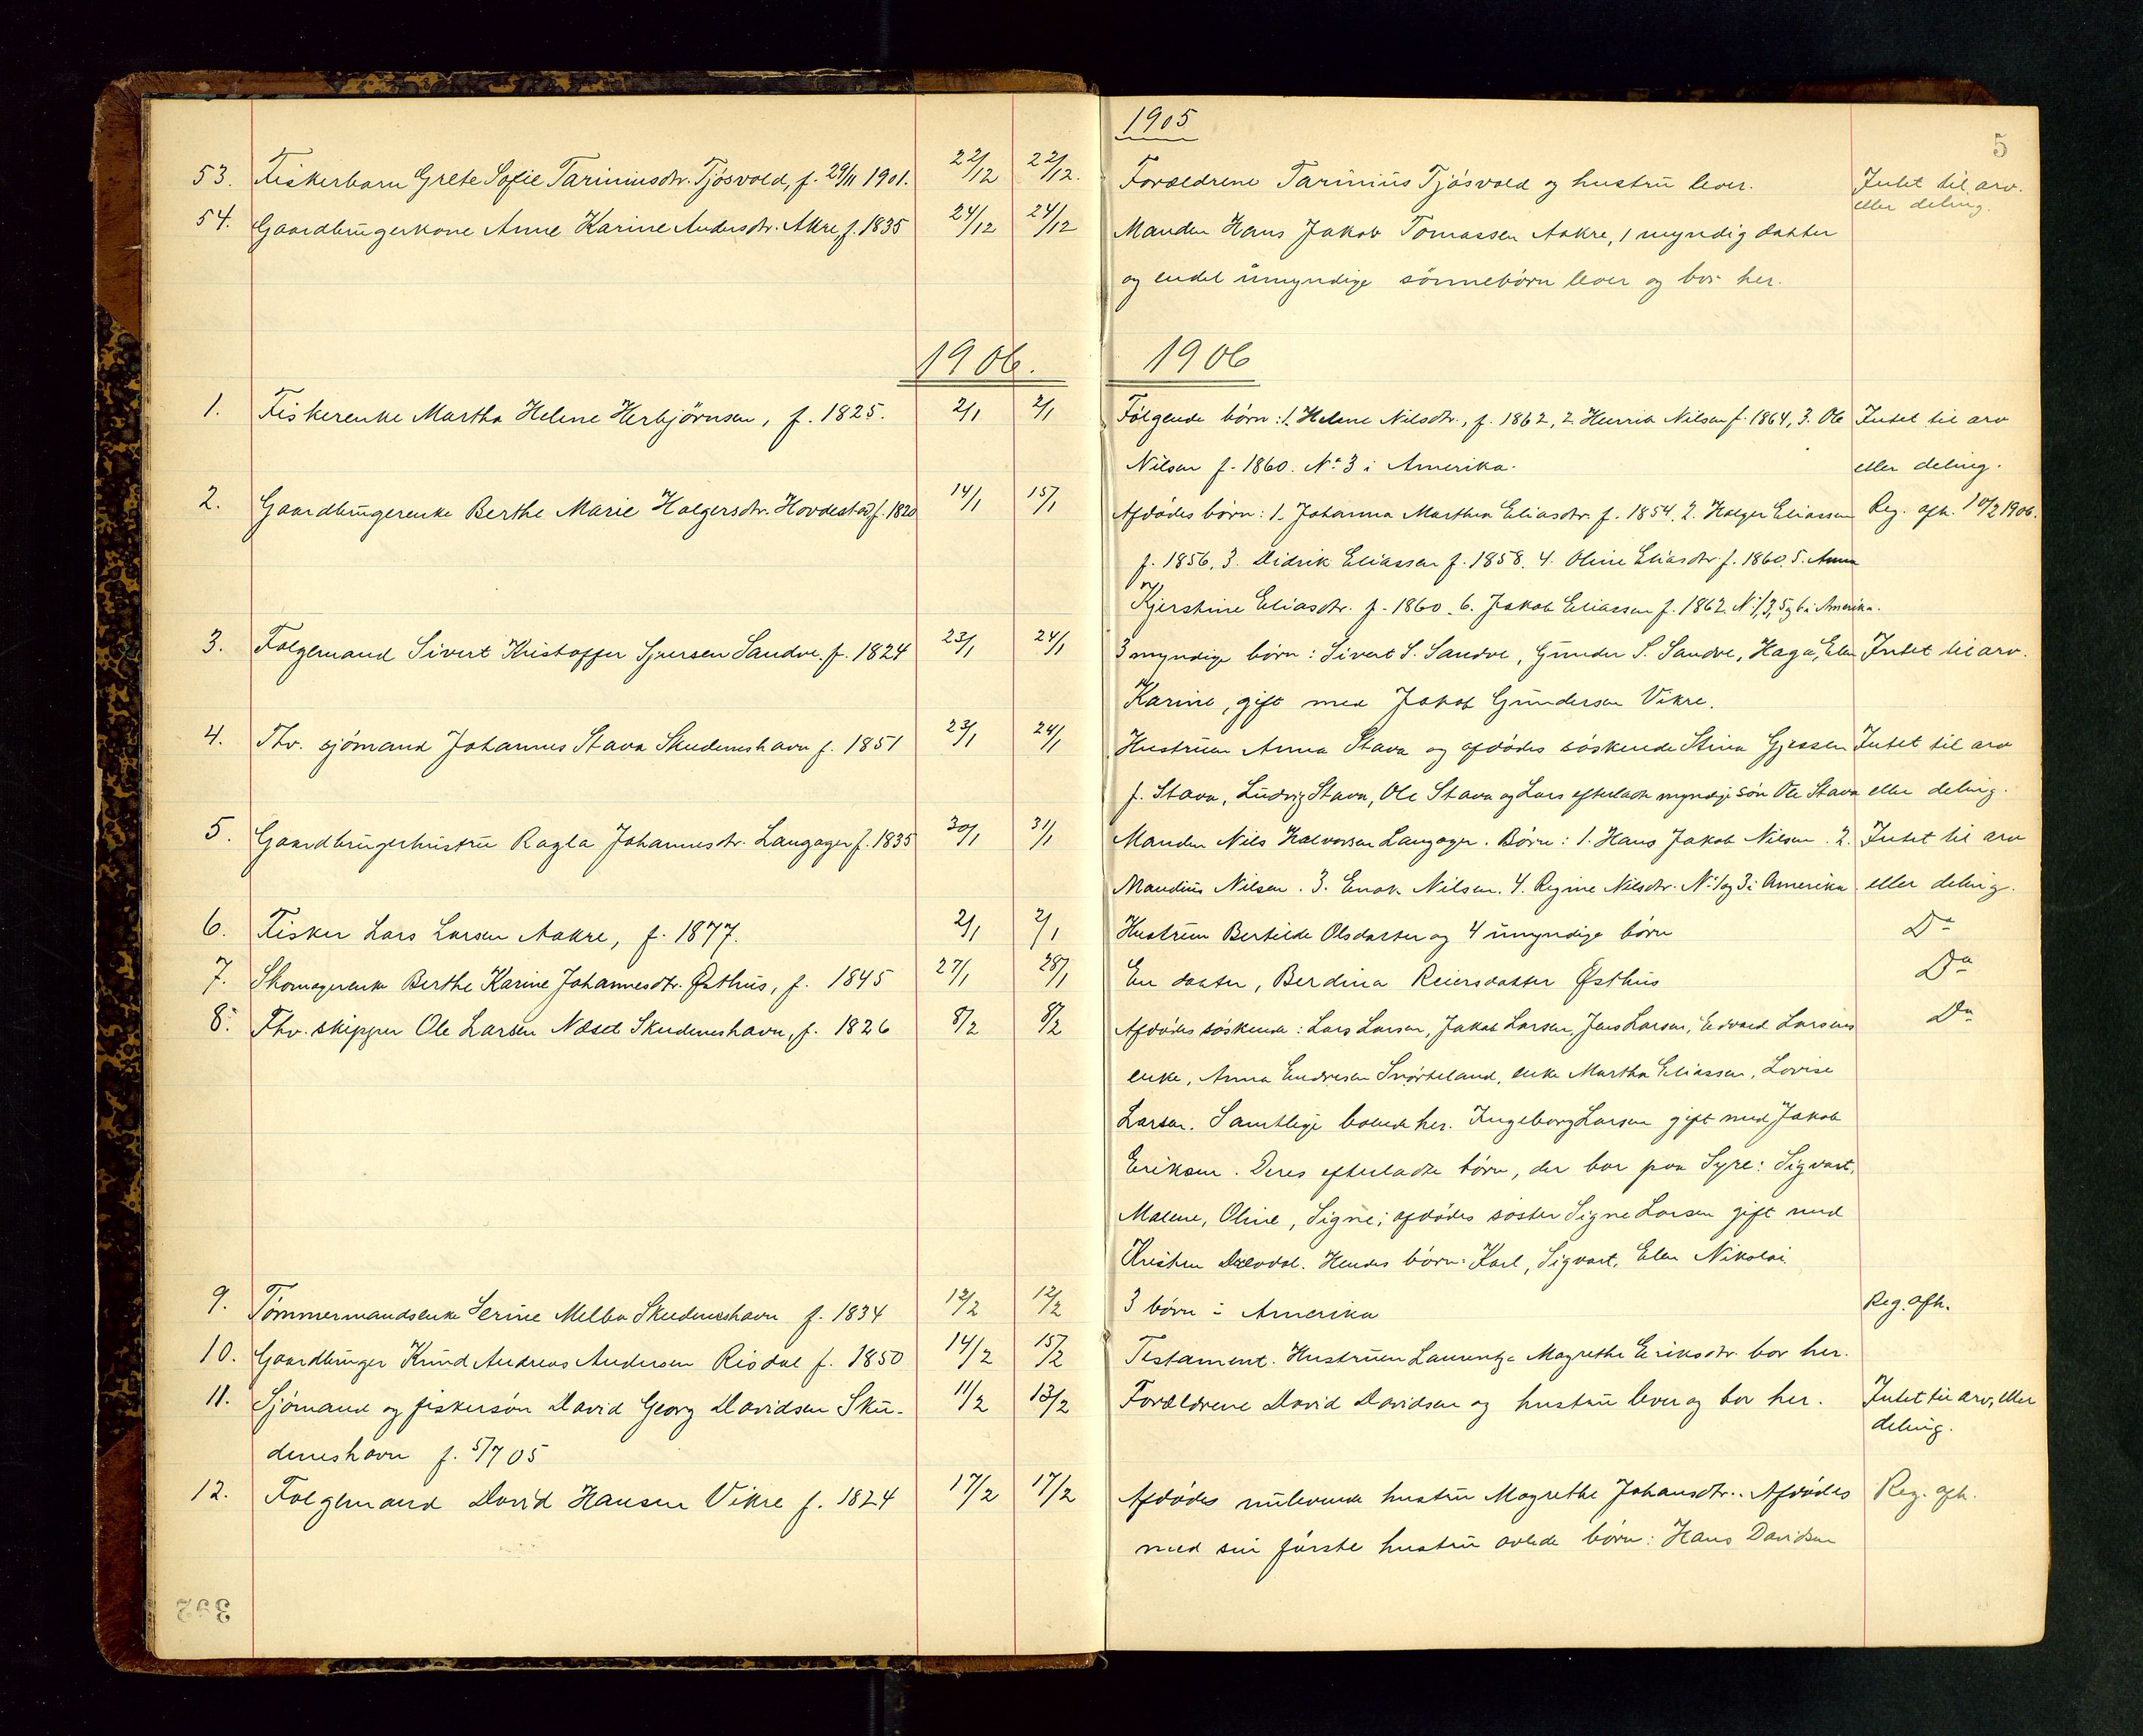 1905
5
53. Fiskerbarn Grete Sofie Tariniusdtr. Tjösvold, f. 29/11 1901. 22/12 22/12. Forældrene Tarinius Tjösvold og hustru lever. Intet til arv.
eller deling.
54. Gaardbrugerkone Anne Karine Andersdtr. Akre f. 1835 24/12 24/12 Manden Hans Jakob Tomassen Aakre, 1 myndig datter
og endel umyndige sönnebörn lever og bor her.
1906. 1906
1. Fiskerenke Martha Helene Herbjörnsen, f. 1825. 2/1 2/1 Fölgende börn: 1. Helene Nilsdtr., f. 1862, 2. Henrik Nilsen f. 1864, 3. Ole Intet til arv
Nilsen f. 1860. No 3 i Amerika. eller deling.
2. Gaardbrugerenke Berthe Marie Holgersdtr. Hovdestad f. 1820 14/1 15/1 Afdödes börn: 1. Johanna Marthea Eliasdtr. f. 1854. 2. Holger Eliassen Reg. afh. 10/2 1906.
f. 1856. 3. Didrik Eliassen f. 1858. 4. Oline Eliasdtr. f. 1860. 5. Anna
Kjerstine Eliasdtr. f. 1860. 6. Jakob Eliassen f. 1862. No 1, 3, 5 og 6 i Amerika.
3. Folgemand Sivert Kristoffer Sjursen Sandve. f. 1824 23/1 24/1 3 myndige börn: Sivert S. Sandve, Gunder S. Sandve, Haga, Elen Intet til arv.
Karine, gift med Jakob Gundersen Vikre.
4. Fhv. sjömand Johannes Stava Skudeneshavn f. 1851 23/1 24/1 Hustruen Anna Stava og afdödes söskende Stina Gjessen Intet til arv
f. Stava, Ludvig Stava, Ole Stava og Lars efterladte myndige sön Ole Stava eller deling.
5. Gaardbrugerhustru Ragla Johannesdtr. Langager f. 1835 30/1 31/1 Manden Nils Halvorsen Langager. Börn: 1. Hans Jakob Nilsen. 2. Intet til arv
Mandius Nilsen. 3. Enok Nilsen. 4. Regine Nilsdtr. No 1 og 3 i Amerika eller deling.
6. Fisker Lars Larsen Aakre, f. 1877. 2/1 2/1 Hustruen Bertilde Olsdatter og 4 umyndige börn Do
7. Skomagerenke Berthe Karine Johannesdtr. Østhus, f. 1845 27/1 28/1 En datter, Berdina Reiersdatter Østhus Do
8. Fhv. skipper Ole Larsen Næset Skudeneshavn, f. 1826 8/2 8/2 Afdödes söskende: Lars Larsen, Jakob Larsen, Jens Larsen, Edvard Larsens Do
enke, Anna Endresen Snörteland, enke Martha Eliassen, Lovise
Larsen. Samtlige boende her. Ingeborg Larsen gift med Jakob
Eriksen. Deres efterladte börn, der bor paa Syre: Sigvart,
Malene, Oline, Signe; afdödes söster Signe Larsen gift med
Kristen Dalvdal. Hendes börn: Karl, Sigvart, Elen Nikolai.
9. Tömmermandsenke Serine Melbu Skudeneshavn f. 1834 12/2 12/2 3 börn i Amerika Reg. afh.
10. Gaardbruger Knud Andreas Andersen Risdal f. 1850 14/2 15/2 Testament. Hustruen Laurentze Magrethe Eriksdtr. bor her.
11. Sjömand og fiskersön David Georg Davidsen Sku- 11/2 13/2 Forældrene David Davidsen og hustru lever og bor her. Intet til arv, eller
deneshavn f. 5/7 05 deling.
12. Folgemand David Hansen Vikre f. 1824 17/2 17/2 Afdödes nulevende hustru Magrethe Johansdtr.. Afdödes Reg. afh.
med sin förste hustru avlede börn: Hans Davidsen
392